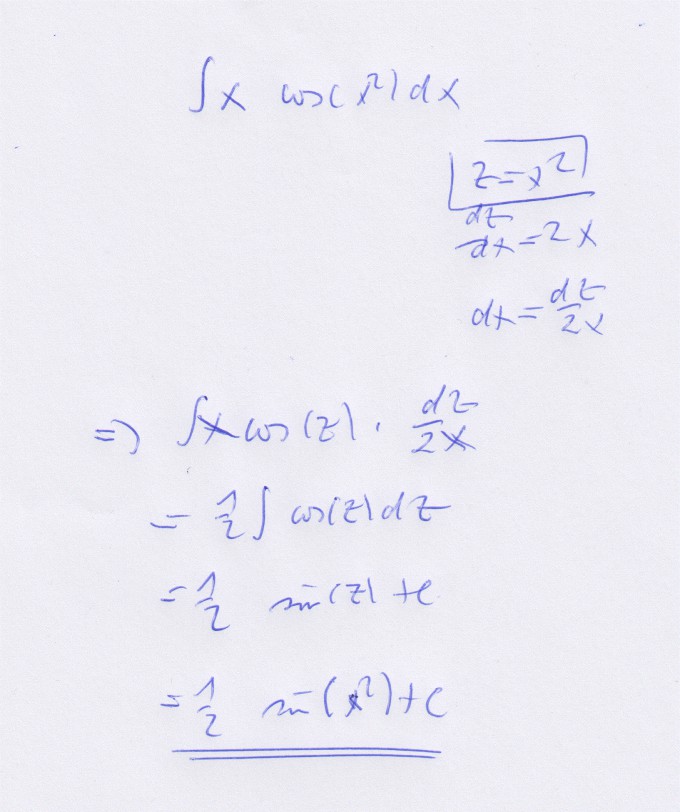 ∫x cos(x²)dx
z=x²
dz/dx=2x
dx=dz/2x
=> ∫x cos(z) · dz/2x
= 1/2 ∫ cos(z)dz
= 1/2 sin(z) +c
= 1/2 sin(x²)+c